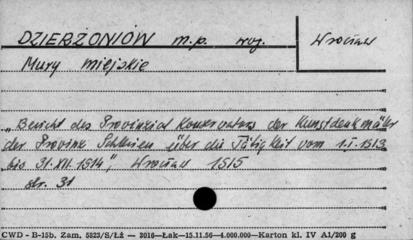 DZIERŻONIÓW m.p. woj. Wrocław
Mury miejskie
„Bericht des Provinzial Konservators der Kunstdenkmäler
der Provinz Schlesien über die Tätigkeit vom 1.I.1913
bis 31.XII.1914", Wrocław 1915
str. 31
CWD - B-15b. Zam. 5823/S/Łż — 3016—Łak—15.11.56—4.000.000—Karton kl. IV A1/200 g